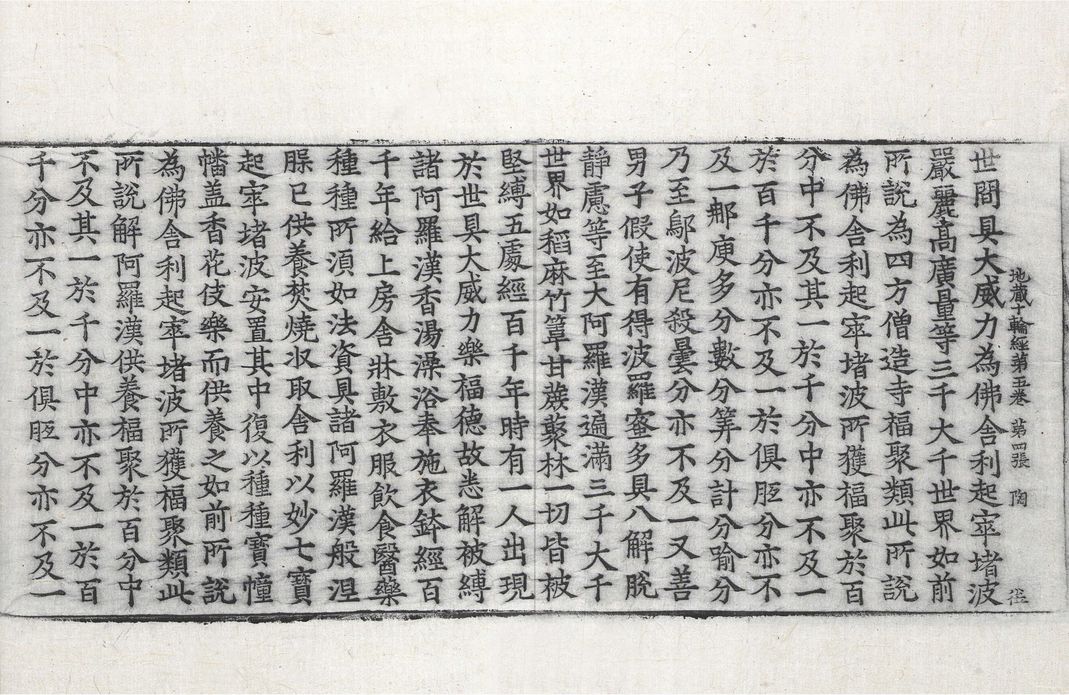 地蔵十輪經第五卷 第四張 陶
世間具大威力為佛舍利起窣堵波
嚴麗髙廣量等三千大千世界如前
所說為四方僧造寺福聚類此所說
為佛舍利起窣堵波所獲福聚於百
分中不及其一於千分中亦不及一
於百千分亦不及一於俱胝分亦不
及一那庾多分數分筭分計分喻分
乃至鄔波尼殺曇分亦不及一又善
男子假使有得波羅蜜多具八解脫
静慮等至大阿羅漢遍滿三千大千
世界如稻麻竹篿甘蔗聚林一切皆被
堅縛五處經百千年時有一人出現
於世具大威力樂福德故悉解被縛
諸阿羅漢香湯澡浴奉施衣鉢經百
千年給上房舍牀敷衣服飲食醫藥
種種所湏如法資具諸阿羅漢般涅
槃已供養焚燒収取舍利以妙七寶
起窣堵波安置其中復以種種寶幢
幡盖香花伎樂而供養之如前所說
為佛舍利起窣堵波所獲福聚類此
所說解阿羅漢供養福聚於百分中
不及其一於千分中亦不及一於百
千分亦不及一於俱胝分亦不及一